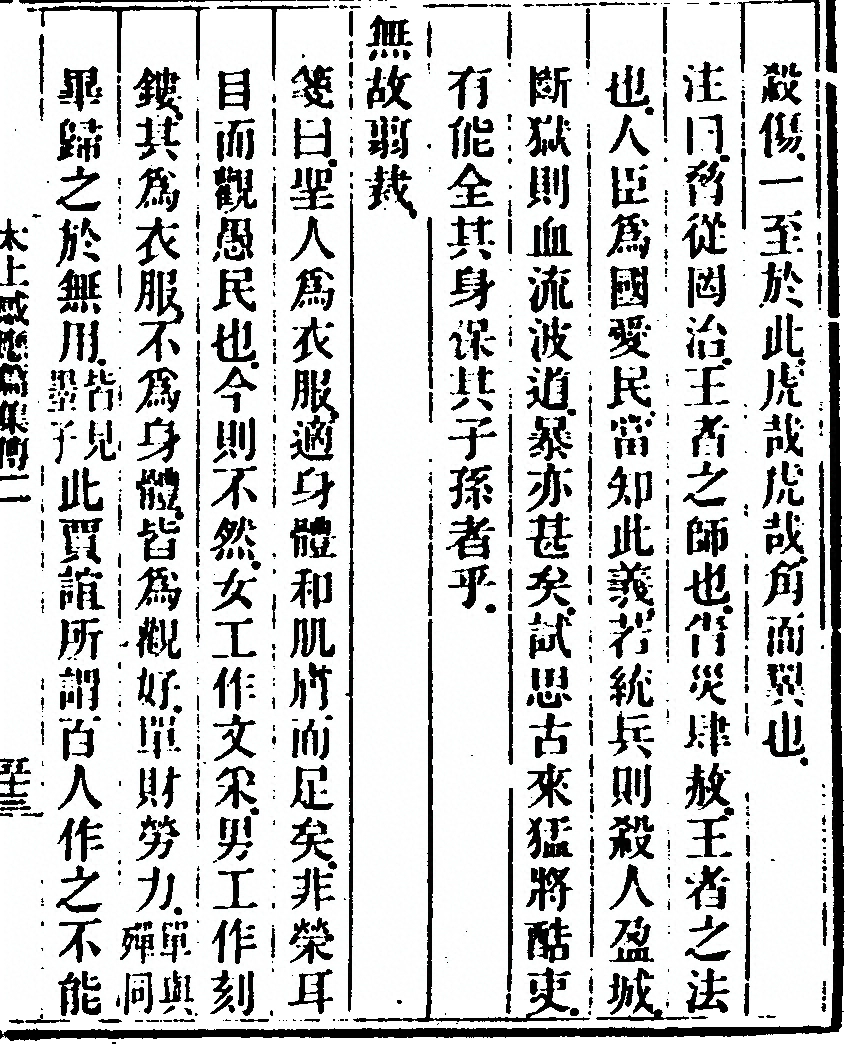 殺傷一至於此虎哉虎哉角而翼也
注曰脅從罔治王者之師也眚災肆赦王者之法
也人臣為國愛民當知此義若統兵則殺人盈城
斷獄則血流波道暴亦甚矣試思古來猛將酷吏
有能全其身保其子孫者乎
無故剪裁
箋曰聖人為衣服適身體和肌膚而足矣非榮耳
目而觀愚民也今則不然女工作文采男工作刻
鏤其為衣服不為身體皆為觀好單財勞力單與殫同
畢歸之於無用皆見墨子此賈誼所謂百人作之不能
太上感應篇集傳二 五十三